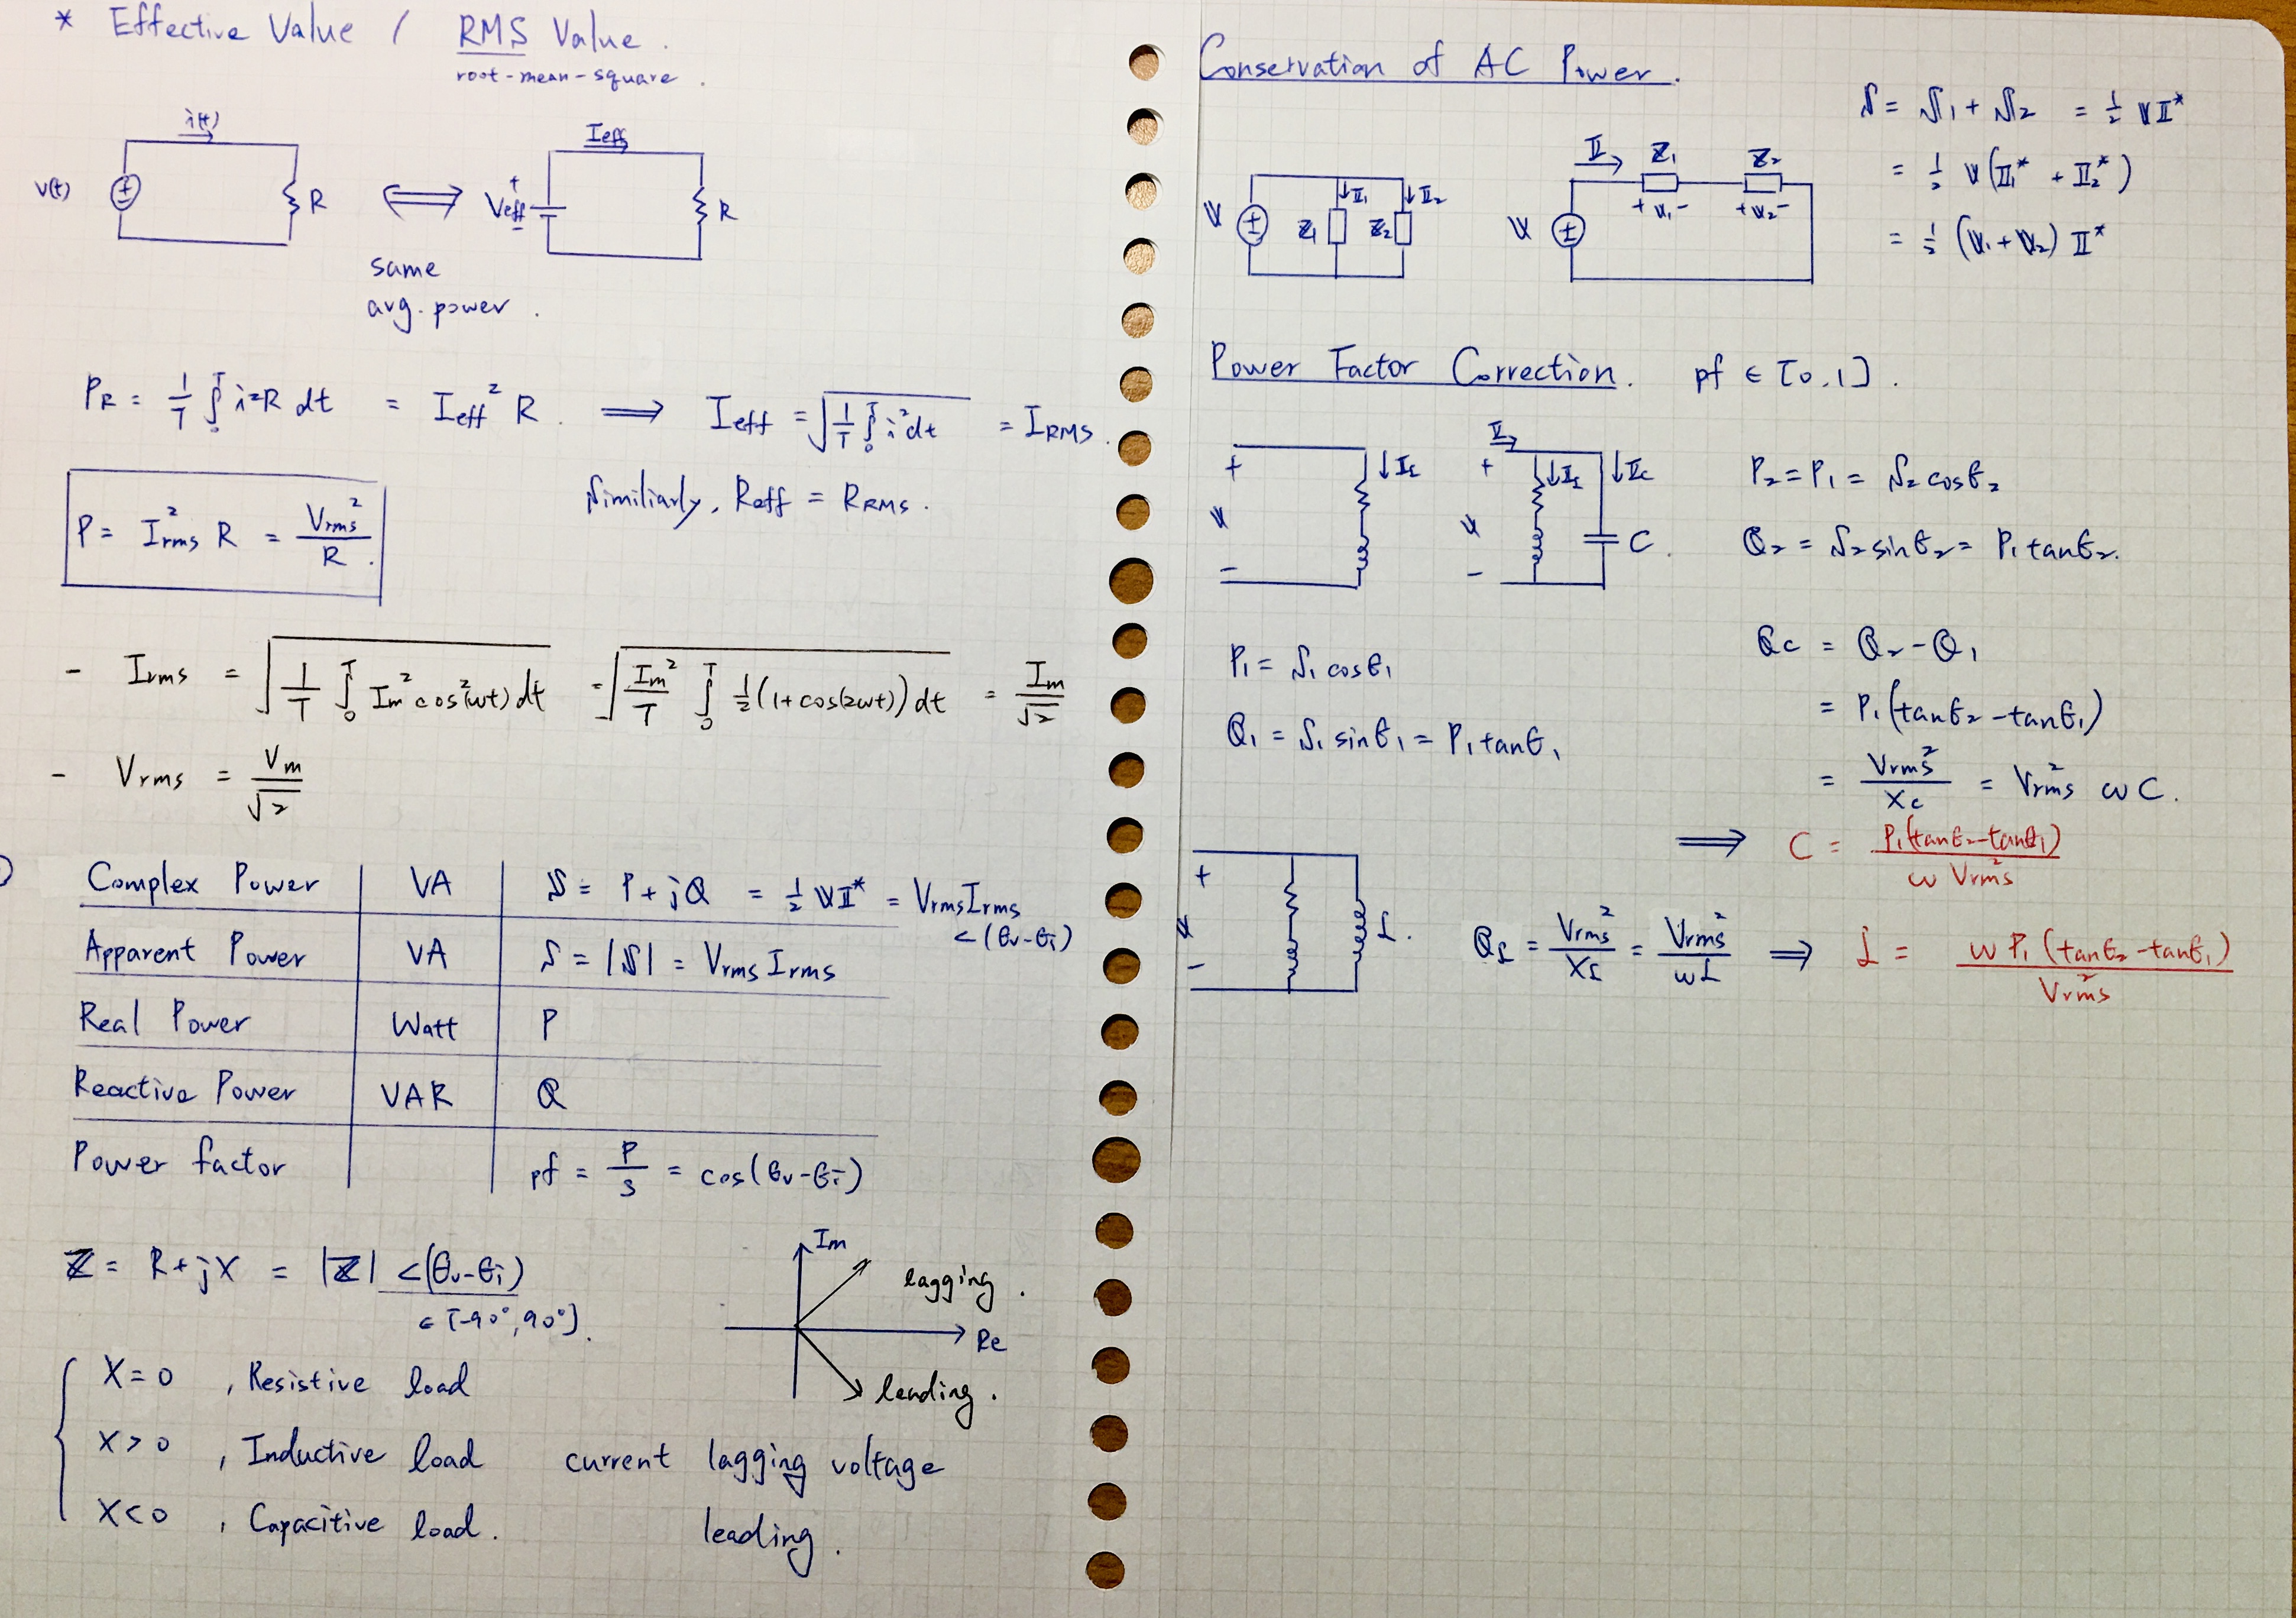 * Effective Value / RMS Value.
root-mean-square.
i(t)
v(t)
R
Ieff
+
Veff
-
R
same
avg. power.
P_R = 1/T ∫₀ᵀ i²R dt = Ieff² R. ⟹ Ieff = √(1/T ∫₀ᵀ i² dt) = I_RMS.
P = Irms² R = Vrms²/R.
Similiarly, Reff = R_RMS.
- Irms = √(1/T ∫₀ᵀ Im² cos²(ωt) dt) = √(Im²/T ∫₀ᵀ 1/2 (1+cos(2ωt)) dt) = Im/√2
- Vrms = Vm/√2
Complex Power | VA | S = P + jQ = 1/2 VI* = Vrms Irms
<(θv-θi)
Apparent Power | VA | S = |S| = Vrms Irms
Real Power | Watt | P
Reactive Power | VAR | Q
Power factor | | pf = P/S = cos(θv-θi)
Z = R+jX = |Z| <(θv-θi)
∈ [-90°, 90°].
Im
lagging.
Re
leading.
X = 0 , Resistive load
X > 0 , Inductive load current lagging voltage
X < 0 , Capacitive load. leading.
Conservation of AC Power.
V
+
-
Z₁
↓I₁
Z₂
↓I₂
V
I
Z₁
Z₂
+ V₁ -
+ V₂ -
S = S₁ + S₂ = 1/2 VI*
= 1/2 V(I₁* + I₂*)
= 1/2 (V₁ + V₂) I*
Power Factor Correction. pf ∈ [0,1].
+
V
-
↓I_L
I
+
V
-
↓I_L
↓I_C
C.
P₂ = P₁ = S₂ cosθ₂
Q₂ = S₂ sinθ₂ = P₁ tanθ₂.
P₁ = S₁ cosθ₁
Q₁ = S₁ sinθ₁ = P₁ tanθ₁
Qc = Q₂ - Q₁
= P₁(tanθ₂ - tanθ₁)
= Vrms²/Xc = Vrms² ωC.
⟹ C = P₁(tanθ₂-tanθ₁)/ω Vrms²
+
V
-
L.
Q_L = Vrms²/X_L = Vrms²/ωL ⟹ L = ωP₁(tanθ₂-tanθ₁)/Vrms²